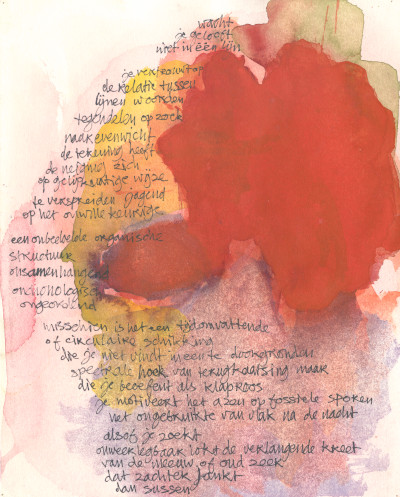 wacht
je gelooft
niet in één lijn
je vertrouwt op
de relatie tussen
lijnen woorden
tegendelen op zoek
naar evenwicht
de tekening heeft
de neiging zich
op gelijkmatige wijze
te verspreiden jagend
op het onwillekeurige
een onbedoelde organische
structuur
onsamenhangend
onchronologisch
ongeordend
misschien is het een tijdomvattende
of circulaire schikking
die je niet vindt meer te doorgronden
spectrale hoek van terugkaatsing maar
die je beoefent als klaproos
je motiveert het azen op fossiele sporen
het ongebruikte van vlak na de nacht
alsof je zoekt
onweerlegbaar lokt de verlangende kreet
van de meeuw of oud zeer
dat zachter jankt
dan sussen